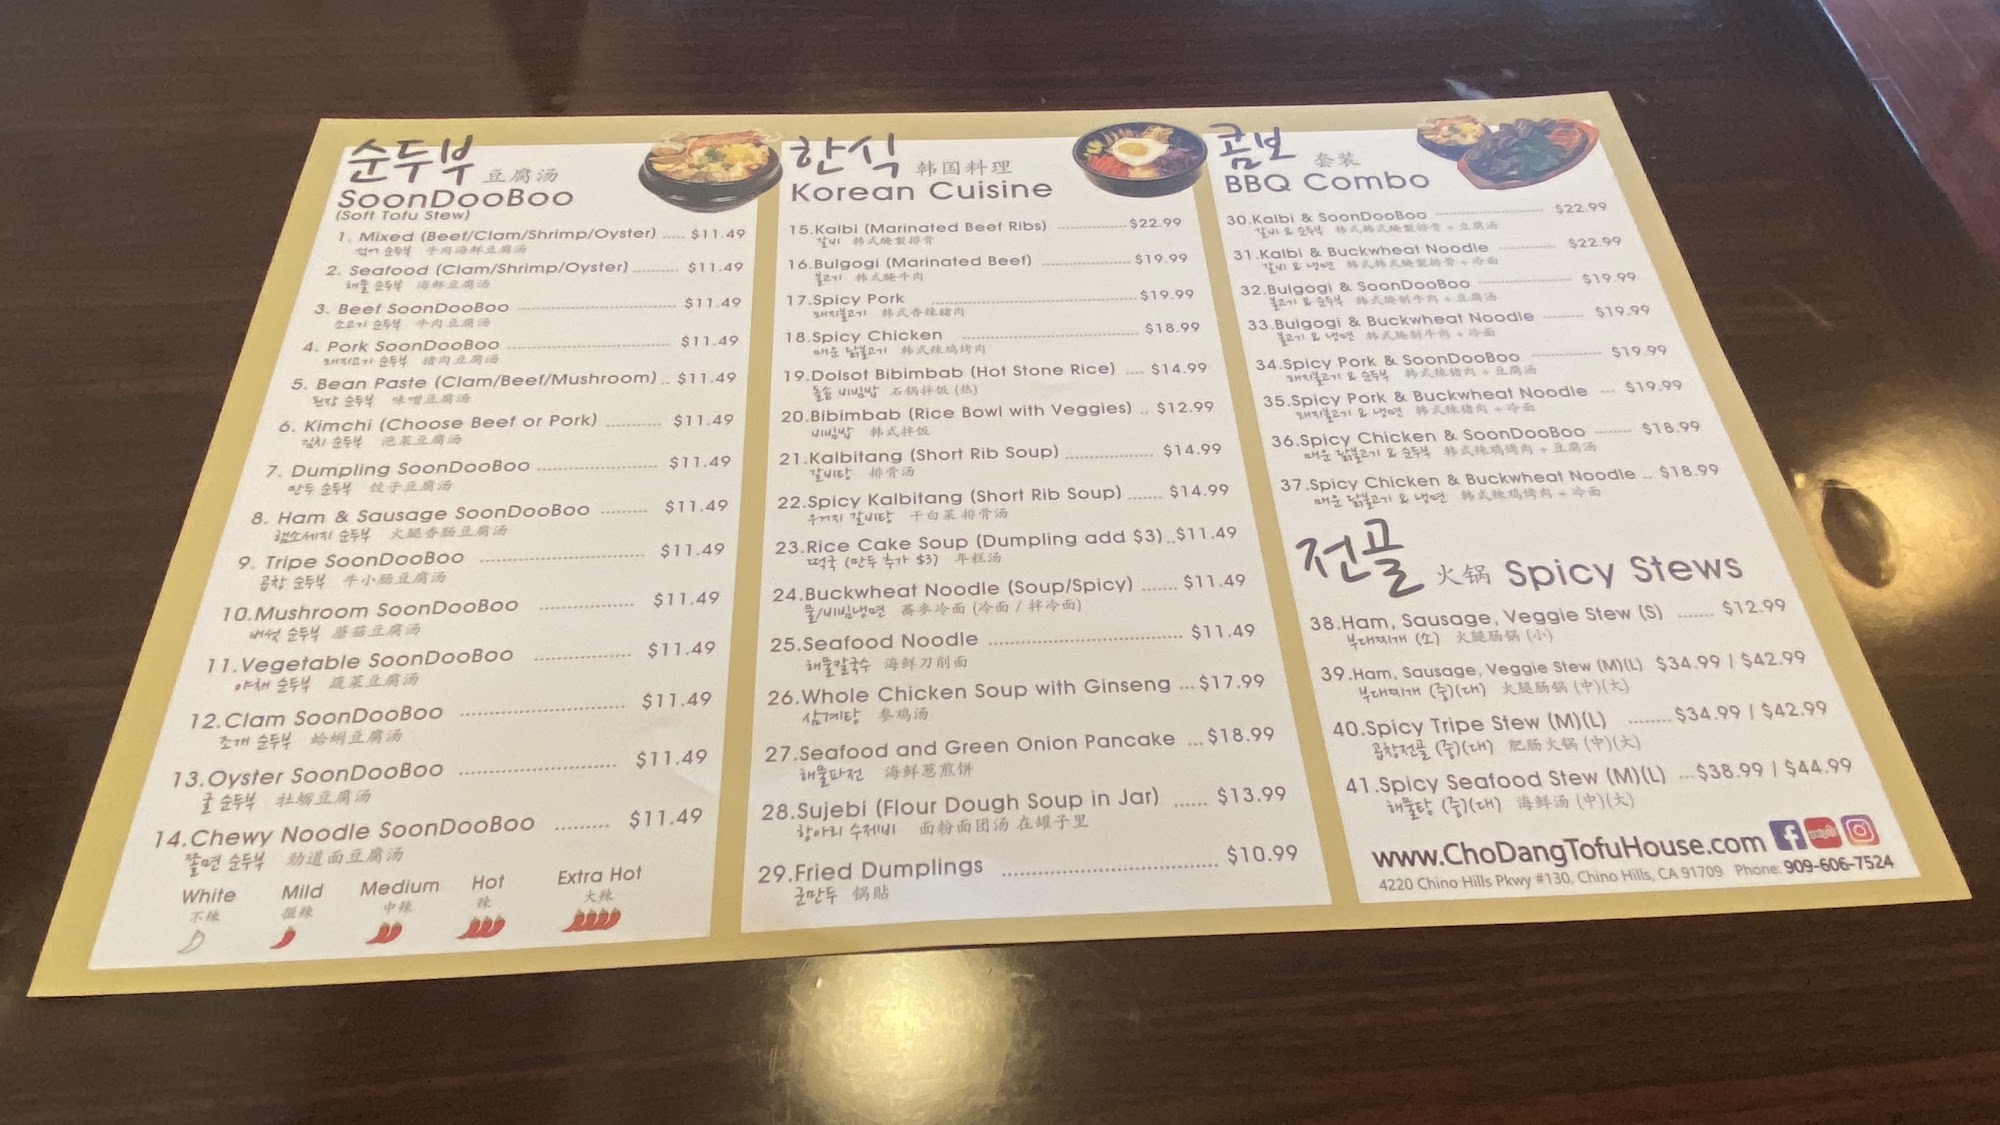 순두부 豆腐汤
SoonDooBoo
(Soft Tofu Stew)
1. Mixed (Beef/Clam/Shrimp/Oyster) ..... $11.49
섞어 순두부 牛肉海鲜豆腐汤
2. Seafood (Clam/Shrimp/Oyster) .......... $11.49
해물 순두부 海鲜豆腐汤
3. Beef SoonDooBoo .......... $11.49
소고기 순두부 牛肉豆腐汤
4. Pork SoonDooBoo .......... $11.49
돼지고기 순두부 猪肉豆腐汤
5. Bean Paste (Clam/Beef/Mushroom) .. $11.49
된장 순두부 味噌豆腐汤
6. Kimchi (Choose Beef or Pork) .......... $11.49
김치 순두부 泡菜豆腐汤
7. Dumpling SoonDooBoo .......... $11.49
만두 순두부 饺子豆腐汤
8. Ham & Sausage SoonDooBoo ......... $11.49
햄소세지 순두부 火腿香肠豆腐汤
9. Tripe SoonDooBoo .......... $11.49
곱창 순두부 牛小肠豆腐汤
10.Mushroom SoonDooBoo .......... $11.49
버섯 순두부 蘑菇豆腐汤
11.Vegetable SoonDooBoo .......... $11.49
야채 순두부 蔬菜豆腐汤
12.Clam SoonDooBoo .......... $11.49
조개 순두부 蛤蜊豆腐汤
13.Oyster SoonDooBoo .......... $11.49
굴 순두부 牡蛎豆腐汤
14.Chewy Noodle SoonDooBoo ......... $11.49
쫄면 순두부 劲道面豆腐汤
White Mild Medium Hot Extra Hot
不辣 微辣 中辣 辣 大辣
한식 韩国料理
Korean Cuisine
15.Kalbi (Marinated Beef Ribs) .......... $22.99
갈비 韩式腌製排骨
16.Bulgogi (Marinated Beef) .......... $19.99
불고기 韩式腌牛肉
17.Spicy Pork .......... $19.99
돼지불고기 韩式香辣猪肉
18.Spicy Chicken .......... $18.99
매운 닭불고기 韩式辣鸡烤肉
19.Dolsot Bibimbab (Hot Stone Rice) .... $14.99
돌솥 비빔밥 石锅拌饭 (热)
20.Bibimbab (Rice Bowl with Veggies) .. $12.99
비빔밥 韩式拌饭
21.Kalbitang (Short Rib Soup) .......... $14.99
갈비탕 排骨汤
22.Spicy Kalbitang (Short Rib Soup) ....... $14.99
우거지 갈비탕 干白菜 排骨汤
23.Rice Cake Soup (Dumpling add $3)..$11.49
떡국 (만두 추가 $3) 年糕汤
24.Buckwheat Noodle (Soup/Spicy) ....... $11.49
물/비빔냉면 蕎麥冷面 (冷面 / 拌冷面)
25.Seafood Noodle .......... $11.49
해물칼국수 海鲜刀削面
26.Whole Chicken Soup with Ginseng ... $17.99
삼계탕 参鸡汤
27.Seafood and Green Onion Pancake ... $18.99
해물파전 海鲜葱煎饼
28.Sujebi (Flour Dough Soup in Jar) ...... $13.99
항아리 수제비 面粉面团汤 在罐子里
29.Fried Dumplings .......... $10.99
군만두 锅贴
콤보 套装
BBQ Combo
30.Kalbi & SoonDooBoo .......... $22.99
갈비 & 순두부 韩式韩式腌製排骨 + 豆腐汤
31.Kalbi & Buckwheat Noodle .......... $22.99
갈비 & 냉면 韩式韩式腌製排骨 + 冷面
32.Bulgogi & SoonDooBoo .......... $19.99
불고기 & 순두부 韩式腌制牛肉 + 豆腐汤
33.Bulgogi & Buckwheat Noodle .......... $19.99
불고기 & 냉면 韩式腌制牛肉 + 冷面
34.Spicy Pork & SoonDooBoo .......... $19.99
돼지불고기 & 순두부 韩式辣猪肉 + 豆腐汤
35.Spicy Pork & Buckwheat Noodle ..... $19.99
돼지불고기 & 냉면 韩式辣猪肉 + 冷面
36.Spicy Chicken & SoonDooBoo ........ $18.99
매운 닭불고기 & 순두부 韩式辣鸡烤肉 + 豆腐汤
37.Spicy Chicken & Buckwheat Noodle .. $18.99
매운 닭불고기 & 냉면 韩式辣鸡烤肉 + 冷面
전골 火锅 Spicy Stews
38.Ham, Sausage, Veggie Stew (S) ....... $12.99
부대찌개 (소) 火腿肠锅 (小)
39.Ham, Sausage, Veggie Stew (M)(L) $34.99 / $42.99
부대찌개 (중)(대) 火腿肠锅 (中)(大)
40.Spicy Tripe Stew (M)(L) ........$34.99 / $42.99
곱창전골 (중)(대) 肥肠火锅 (中)(大)
41.Spicy Seafood Stew (M)(L) ...$38.99 / $44.99
해물탕 (중)(대) 海鲜汤 (中)(大)
www.ChoDangTofuHouse.com f yelp
4220 Chino Hills Pkwy #130, Chino Hills, CA 91709 Phone: 909-606-7524